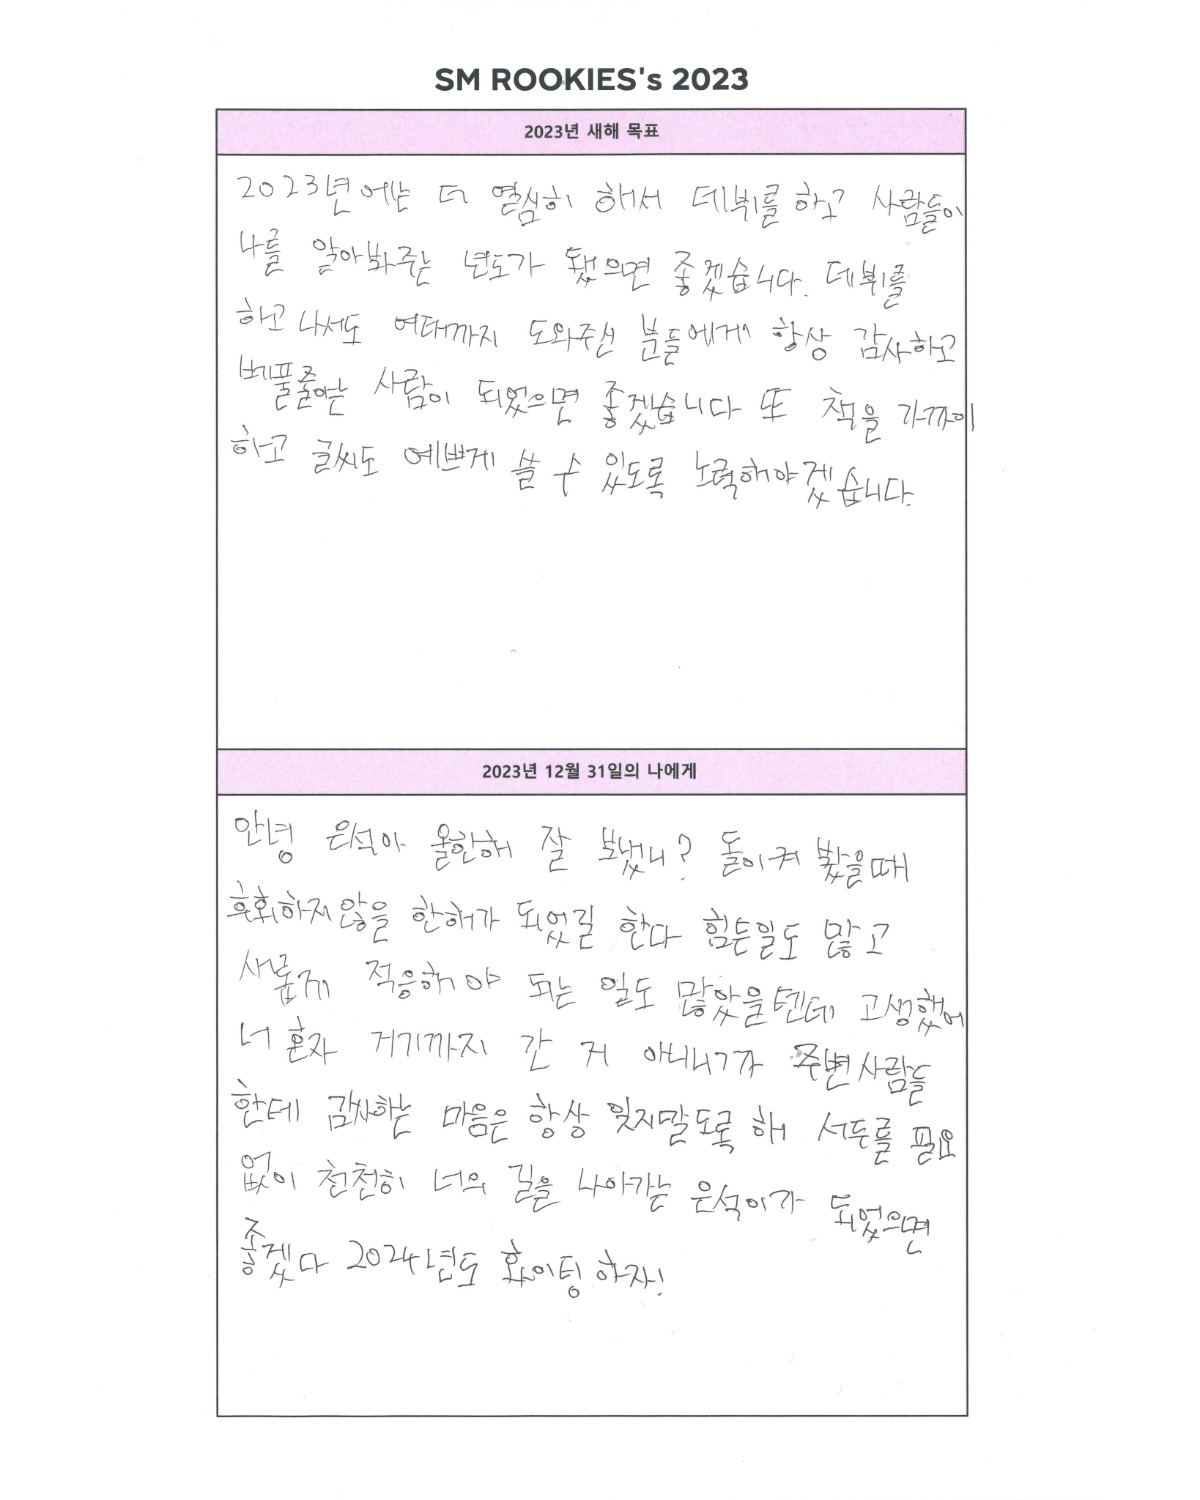 SM ROOKIES's 2023
2023년 새해 목표
2023년에는 더 열심히 해서 데뷔를 하고 사람들이
나를 알아봐주는 년도가 됐으면 좋겠습니다. 데뷔를
하고 나서도 여태까지 도와주신 분들에게 항상 감사하고
베풀줄아는 사람이 되었으면 좋겠습니다 또 책을 가까이
하고 글씨도 예쁘게 쓸 수 있도록 노력해야겠습니다.
2023년 12월 31일의 나에게
안녕 은석아 올한해 잘 보냈니? 돌이켜 봤을때
후회하지않을 한해가 되었길 한다 힘든일도 많고
새롭게 적응해야 되는 일도 많았을텐데 고생했어
너 혼자 거기까지 간 거 아니니까 주변사람들
한테 감사하는 마음은 항상 잊지말도록 해 서두를 필요
없이 천천히 너의 길을 나아가는 은석이가 되었으면
좋겠다 2024년도 화이팅 하자!